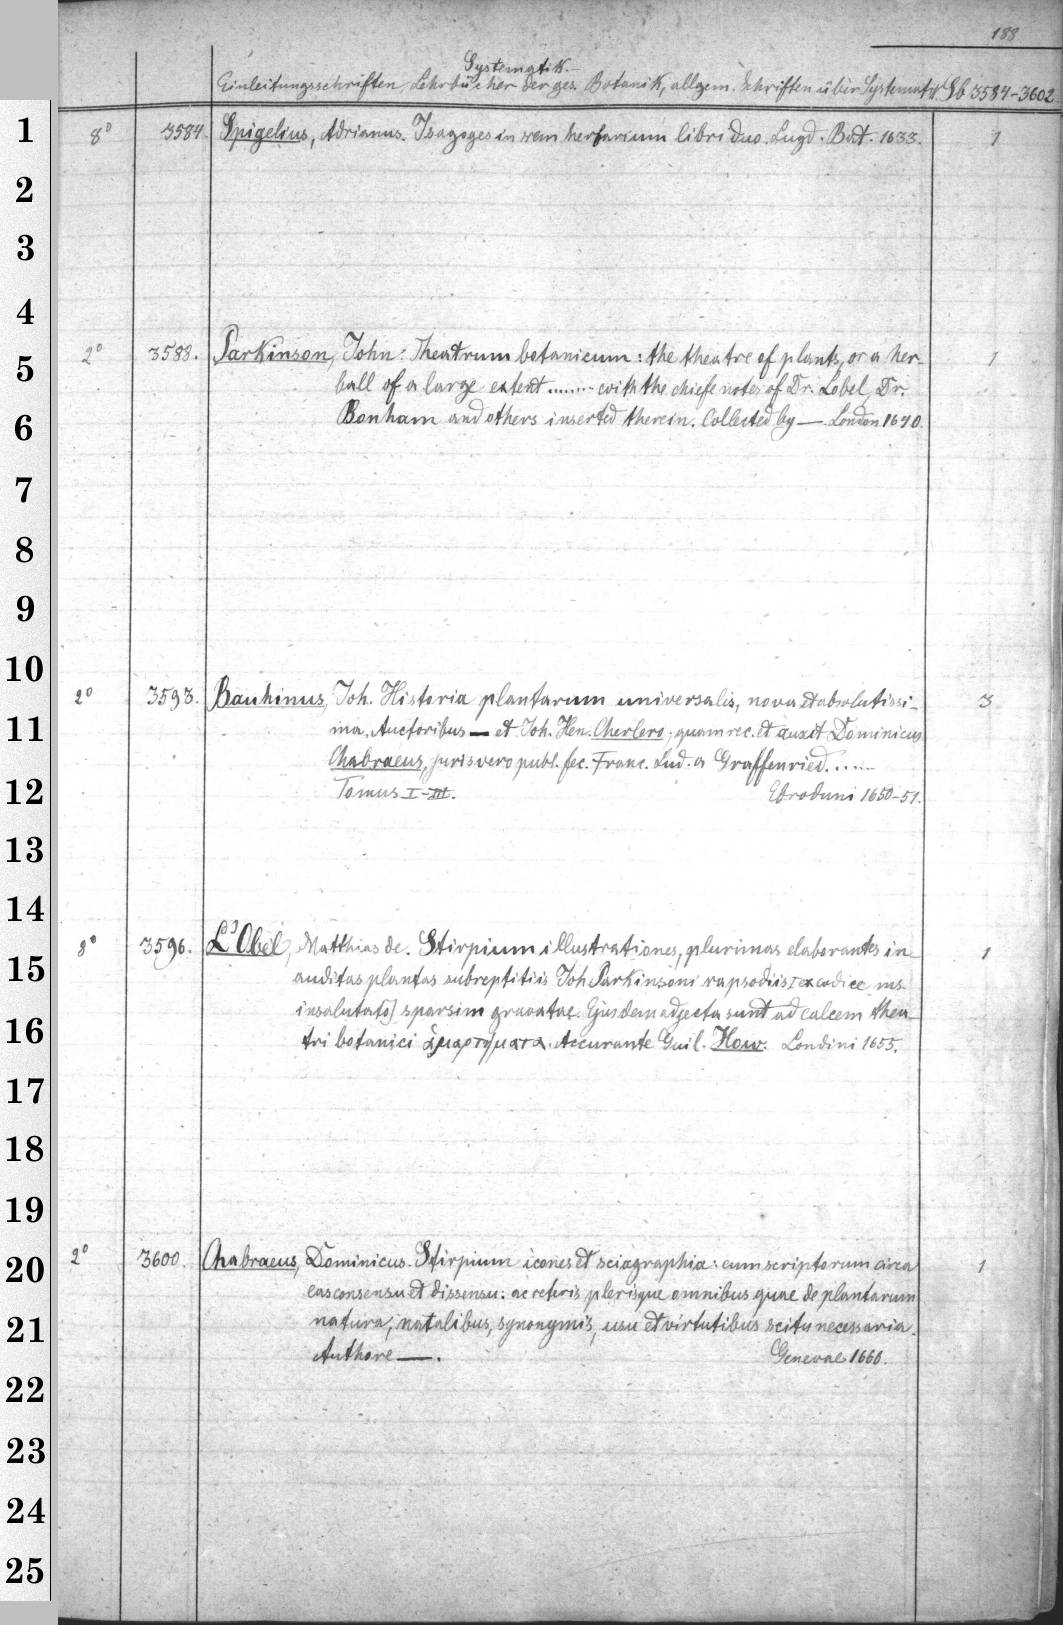 188
Systematik.
Einleitungsschriften, Lehrbücher der ges. Botanik, allgem. Schriften über Systematik. Sb 3584-3602
1 8° 3584. Spigelius, Adrianus. Isagoges in rem herbarium libri duo. Lugd. Bat. 1633. 1
2
3
4
5 2° 3588. Parkinson, John: Theatrum botanicum: the theatre of plants, or a her- 1
ball of a large extent ........ with the chiefe notes of Dr. Lobel, Dr.
6 Bonham and others inserted therein. Collected by — London 1640.
7
8
9
10 2° 3593. Bauhinus, Joh. Historia plantarum universalis, nova et absolutissi- 3
11 ma, Auctoribus — et Joh. Hen. Cherlero; quam rec. et auxit Dominicus
Chabraeus, juris vero publ. fec. Franc. Lud. a Graffenried. .....
12 Tomus I-III. Ebroduni 1650-51.
13
14
8° 3596. L'Obel, Matthias de. Stirpium illustrationes, plurimas elaborantes in- 1
15 auditas plantas subreptitiis Joh Parkinsoni rapsodiis [ex codice ms.
insalutato] sparsim gravatae. Ejusdem adjecta sunt ad calcem thea-
16 tri botanici ἁμαρτήματα. Accurante Guil. How. Londini 1655.
17
18
19
20 2° 3600. Chabraeus, Dominicus. Stirpium icones et sciagraphia: cum scriptorum circa 1
eas consensu et dissensu: ac ceteris plerisque omnibus quae de plantarum
21 natura, natalibus, synonymis, usu et virtutibus scitu necessaria.
Authore —. Genevae 1666.
22
23
24
25